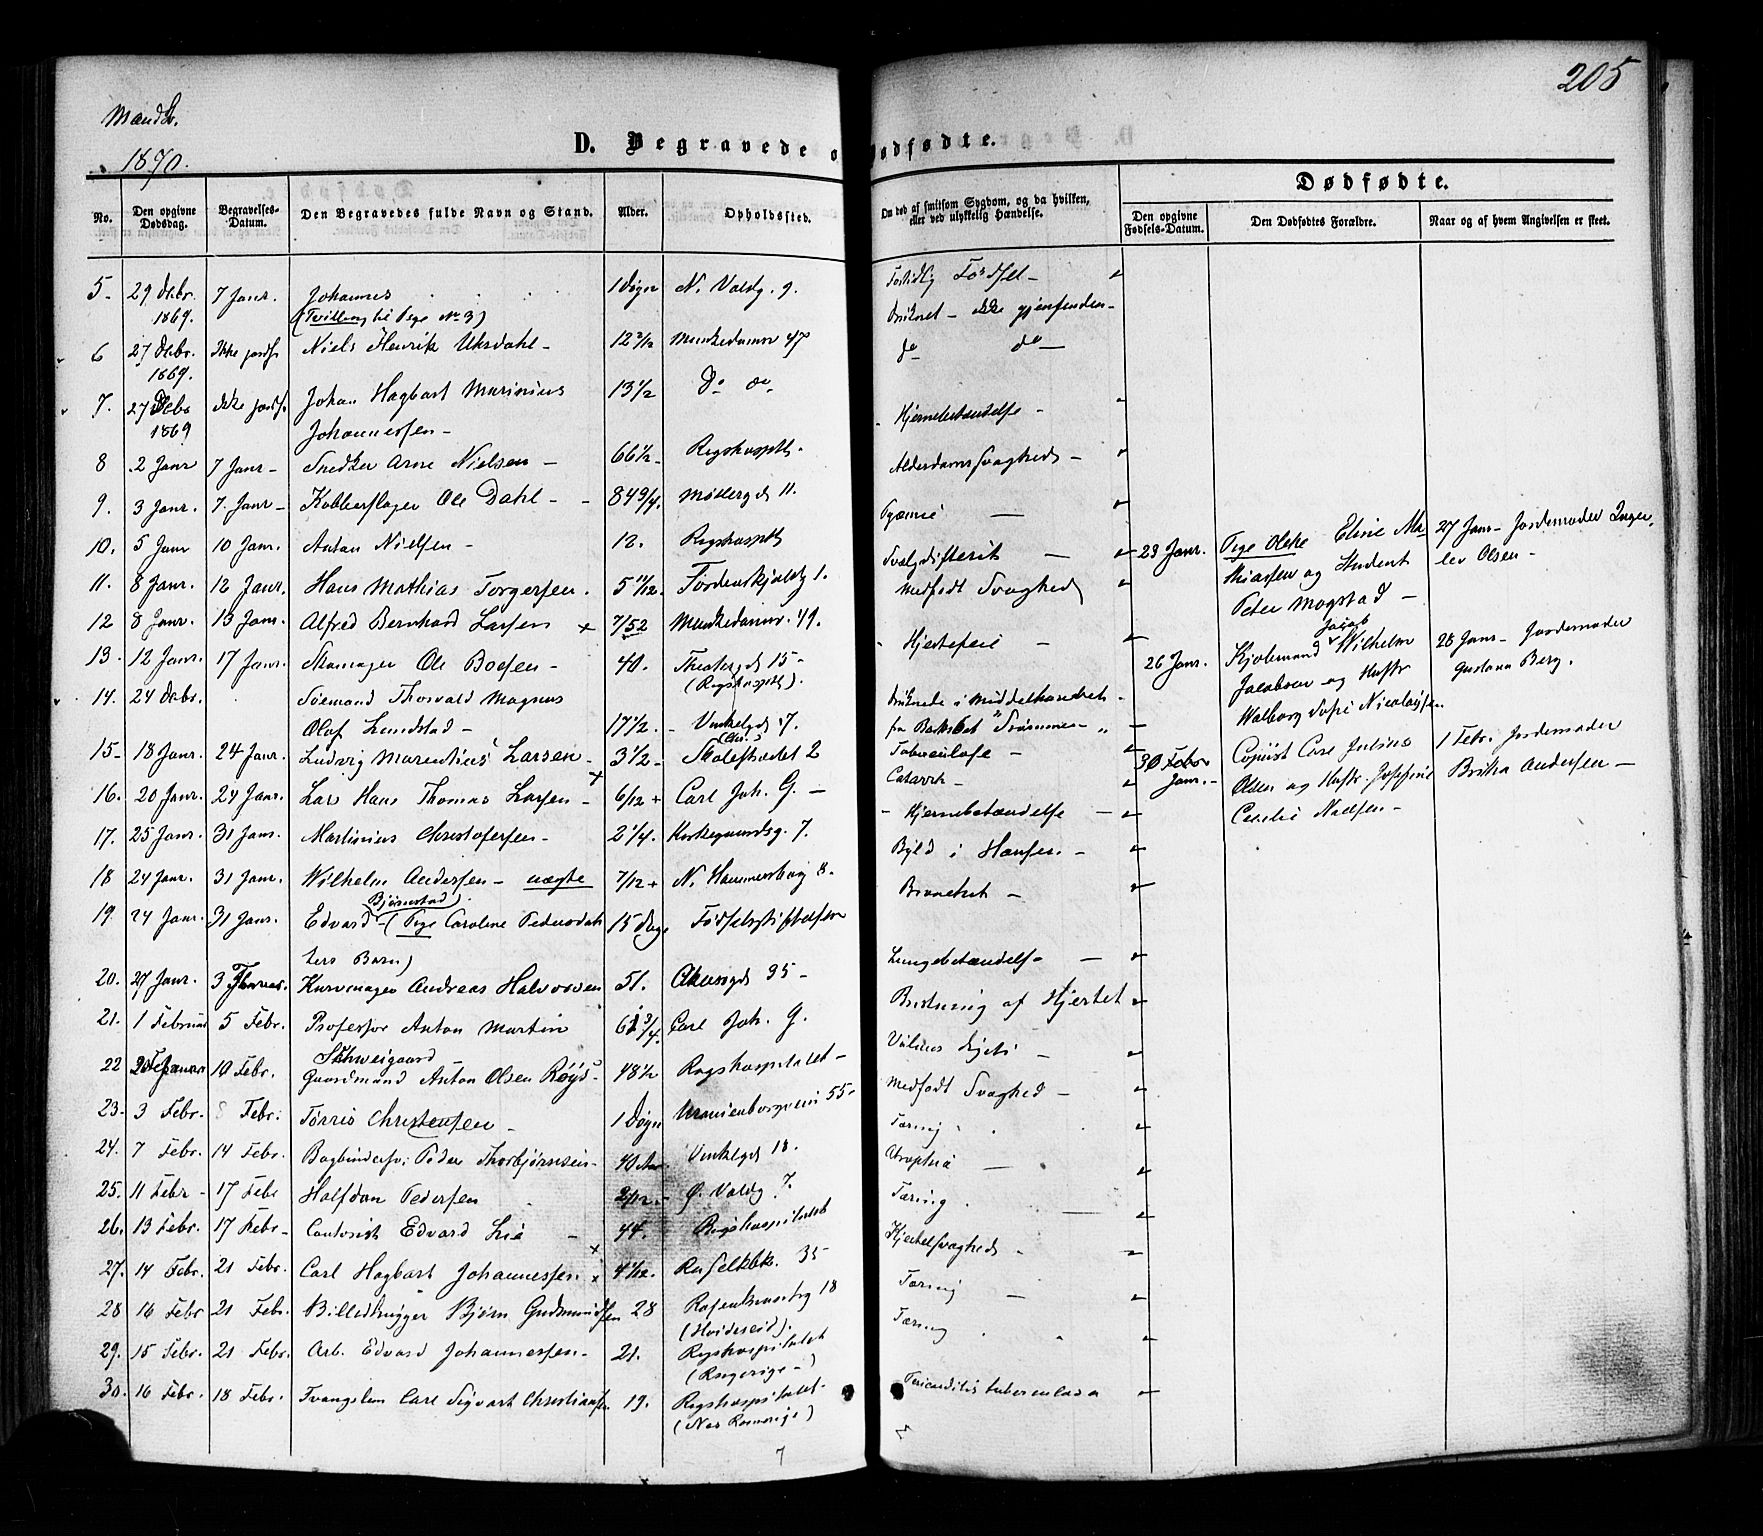 205
Mandk.
1870.
D. Begravede o
Dødfødte.
Dødfødte.
No.
Den opgivne Dødsdag.
Begravelses-Datum.
Den Begravedes fulde Navn og Stand.
Alder.
Opholdssted.
Om død af smitsom Sygdom, og da hvilken, eller ved ulykkelig Hændelse.
Den opgivne Fødsels-Datum.
Den Dødfødtes Forældre.
Naar og af hvem Angivelsen er skeet.
5 - 29 Debr. 1869. 7 Janr. Johannes 1 Døgn N. Valdg. 9. Fødsel -
(Tvilling til Pige No 3) Druknet - ikke gjenfunden -
6 27 Debr. 1869. Ikke jordf. Niels Henrik Uksdahl - 12 3/12 Munkedamsv 47 do do -
7. 27 Debr 1869 Ikke jordf. Johan Hagbart Marinius 13 1/2 Do do
Johannessen - Hjernebetændelse -
8 2 Janr 7 Janr - Snedker Arne Nielsen - 66 1/2 - Rigshospith. Alderdomssvaghed -
9. 3 Janr. 7. Janr - Kobberslager Ole Dahl - 84 3/4. Møllergd 11. Pyæmie -
10. 5 Janr 10 Janr. Anton Nielsen - 12. Rigshospith Svælgdifterit -
11. 8 Janr. 12 Janr. Hans Mathias Torgersen. 5 11/12. Tordenskjoldg 1. Medfødt Svaghed
12 8 Janr. 13 Janr. Alfred Bernhard Larsen x 7/52 Munkedamsv. 49. - Hjertefeil -
13. 12 Janr. 17 Janr. Skomager Ole Boesen - 40. Theatergd 15 -
(Rigshospith).
14. 24 Debr. Sømand Thorvald Magnus Druknede i Middelhavet
Olaf Lundstad - 17 1/2. - Vinkelgd 7.
15 - 18 Janr. 24 Janr. Ludvig Marentius Larsen - 3 1/2 - 2 Tuberculose -
16. 20 Janr. 24 Janr. Lars Hans Thomas Larsen - x 6/12 + Carl Joh. G. - Catarrh -
17. 25 Janr. 31 Janr. Martinius Christofersen - 2 1/4. Kirkegaardsg. 7. - Hjernebetændelse -
18 24 Janr. 31 Janr. Wilhelm Andersen - uægte 7/12 + N. Hammersborg 8. Byld i Halsen -
19. 24 Janr. 31 Janr. Edvard - (Pige Caroline Pedersdat 15 Dage Fødselsstiftelsen
Bjørnstad)
ters Barn) Lungebetændelse -
20. 27 Janr. 3 Febr. Kurvmager Andreas Halvorsen 51. Akersgd 35 - Bristning af Hjertet
21. 1 Februar 5 Febr. Professor Anton Martin 61 3/4. Carl Joh. G.
Schweigaard
22 10 Febr. Gaardmand Anton Olsen Røys - 48 1/2 Rigshospitalet -
Medfødt Svaghed -
23. 3 Febr. 8 Febr. Torris Christensen - 1 Døgn Uranienborgveien 55 - Tæring
24. 7 Febr. 14 Febr. Bogbindersv. Peder Thorbjørnsen - 40 Aar Vinkelgd 18. Atrophia -
25. 11 Febr - 17 Febr Halfdan Pedersen 2/12. - Ø. Voldg 7. Tæring
26. 13 Febr. 17 Febr - Contorist Edvard Lie - 44. Rigshospitalet Kjertelsvaghed -
27. 14 Febr. 21 Febr. Carl Hagbart Johannessen x 4/12. 35 - Tæring -
28 16 Febr 21 Febr. Billedhugger Bjørn Gudmundsen 28 Rosenkrantzg 18
(Hvideseid). Tæring
29. 15 Febr. 21 Febr. Arb. Edvard Johannessen - 21. Rigshospitalet
(Ringerige -)
30. 16 Febr. 18 Febr. Carl Sigvart Christiansen 19. Rigshospitalet - Pericarditis tuberculosa
(Nes Romerige)
23 Janr. Pige Oleke Eline Ma
thiasen og Student
Peter Mogstad -
27 Janr - Jordemoder Inger
lev Olsen -
26 Janr. Kjøbmand Jacob Wilhelm
Jacobsen og Hustr
Walborg Sofie Nicolaysen
28 Janr - Jordemoder
Gustava Berg.
30 Febr Janr. - Copiist Carl Julius
Olsen og Hustr. Josefine
Cecilie Nielsen -
1 Febr. Jordemoder
Britha Andersen -
7